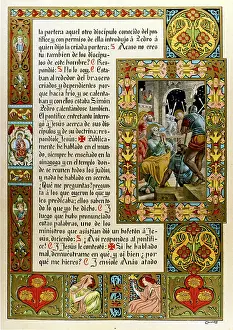 la portera aquel otro discípulo conocido del pon-
tífice y con permiso de ella introdujo á Pedro á
quien dijo la criada portera: S Acaso no eres
tu tambien de los discípu-
los de este hombre? C Res-
pondió: S No lo soy. C Es-
taban al rededor del brasero
criados y dependientes por-
que hacía frío, y se calenta-
ban y con ellos estaba Simón
Pedro calentándose tambien.
El pontífice entre tanto interro-
gó á Jesús acerca de sus discí-
pulos y de su doctrina; res-
pondióle Jesús: ✠ Pública-
mente he hablado en el mun-
do, siempre he enseñado en la
sinagoga y en el templo don-
de se reunen todos los judíos,
y nada he hablado en secreto.
¿Qué me preguntas? pregun-
ta á los que oyeron lo que
les predicaba; ellos saben to-
do lo que yo he dicho. C Y
luego que hubo pronunciado
estas palabras, uno de los
ministros que asistían dió un bofetón á Je-
sús, diciendo: S ¿Así respondes al pontífi-
ce? C Y Jesús le contestó: ✠ Si he hablado
mal, demuéstrame en qué, y si bien ¿por
qué me hieres? C Y envióle Anás atado